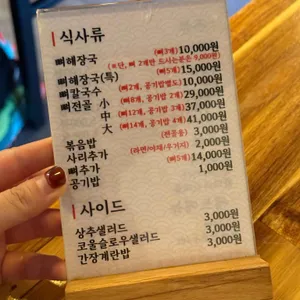 식사류
뼈해장국 (뼈3개) 10,000원
(※단, 뼈 2개만 드시는분은 9,000원)
뼈해장국(특) (뼈5개) 15,000원
뼈칼국수 (뼈2개, 공기밥별도) 10,000원
뼈전골 小 (뼈8개, 공기밥 2개) 29,000원
中 (뼈12개, 공기밥 3개) 37,000원
大 (뼈14개, 공기밥 4개) 41,000원
볶음밥 (전골용) 3,000원
사리추가 (라면/야채/우거지) 2,000원
뼈추가 (뼈5개) 14,000원
공기밥 1,000원
사이드
상추샐러드 3,000원
코울슬로우샐러드 3,000원
간장계란밥 3,000원